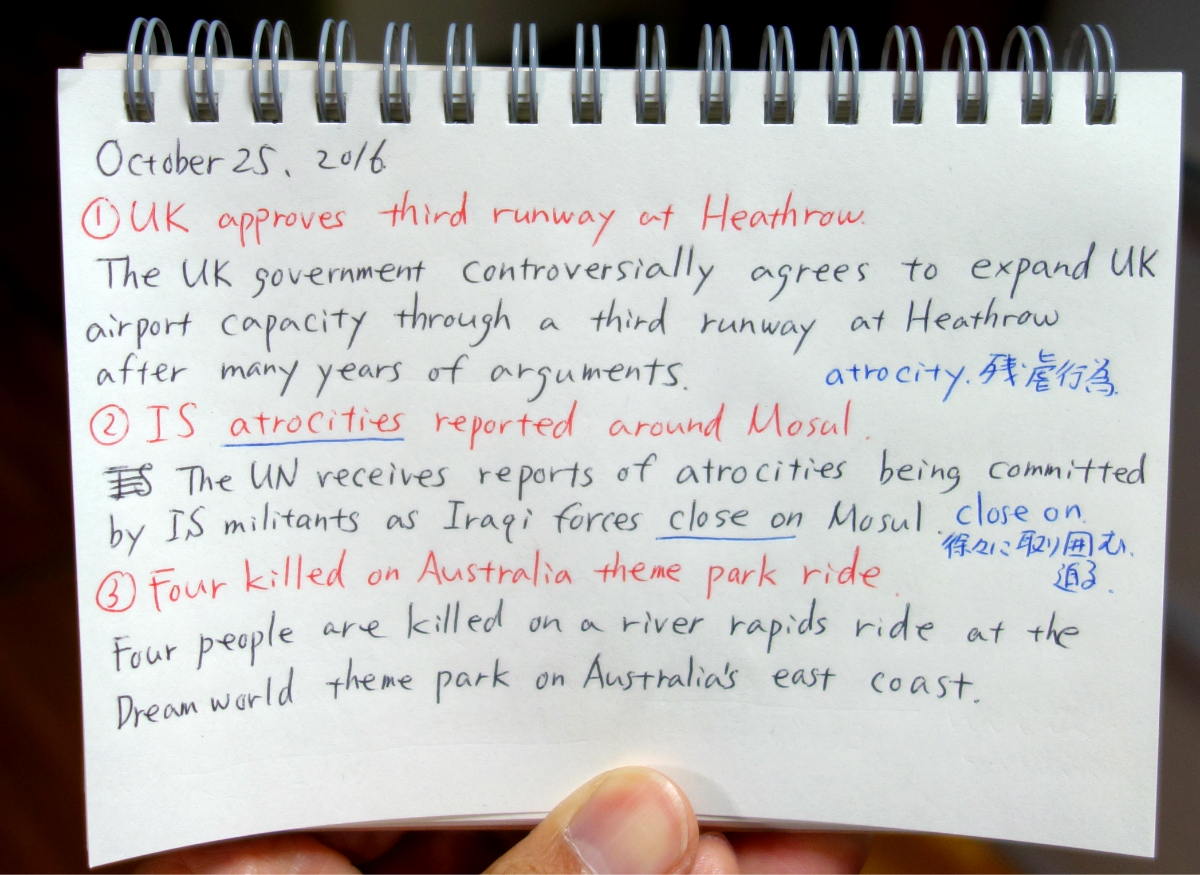 October 25, 2016
① UK approves third runway at Heathrow.
The UK government controversially agrees to expand UK
airport capacity through a third runway at Heathrow
after many years of arguments.
atrocity. 残虐行為.
② IS atrocities reported around Mosul.
The UN receives reports of atrocities being committed
by IS militants as Iraqi forces close on Mosul.
close on
徐々に取り囲む.
迫る.
③ Four killed on Australia theme park ride.
Four people are killed on a river rapids ride at the
Dreamworld theme park on Australia's east coast.